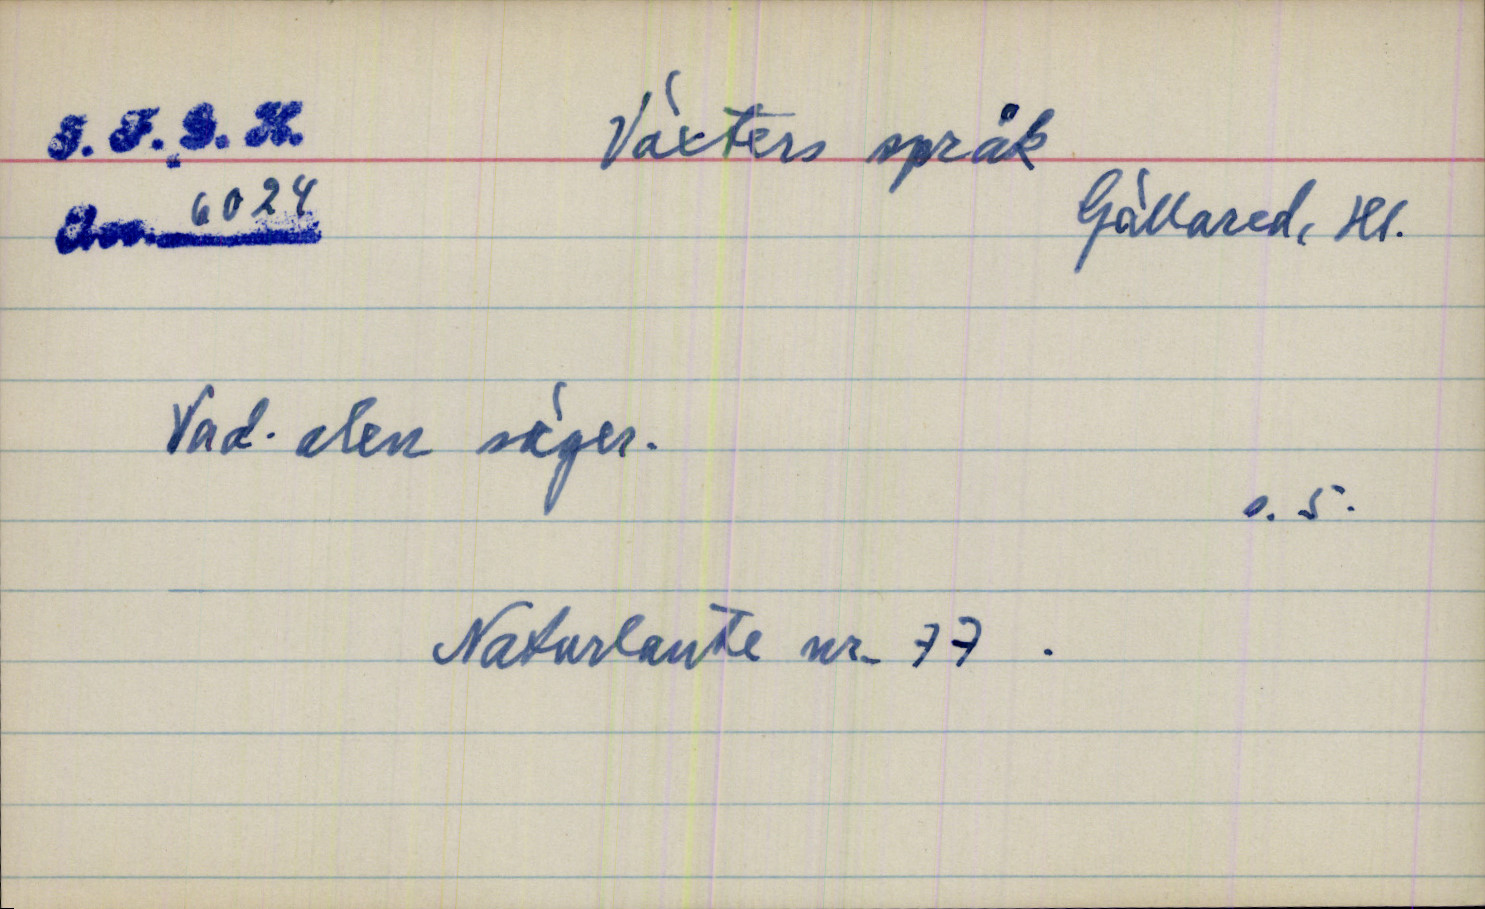 I. F. G. H.
Växters språk
Acc. 6024
Gällared, Hl.
Vad alen säger.
s. 5.
Naturlaute nr. 77.